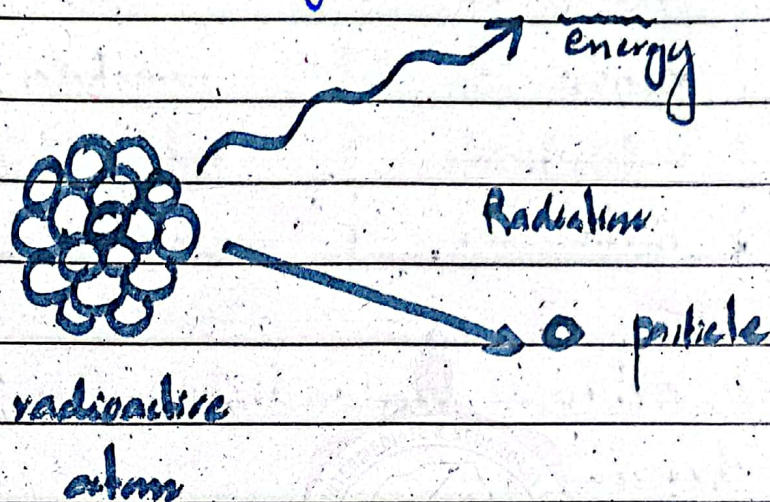 energy
Radiation
particle
radioactive
atom